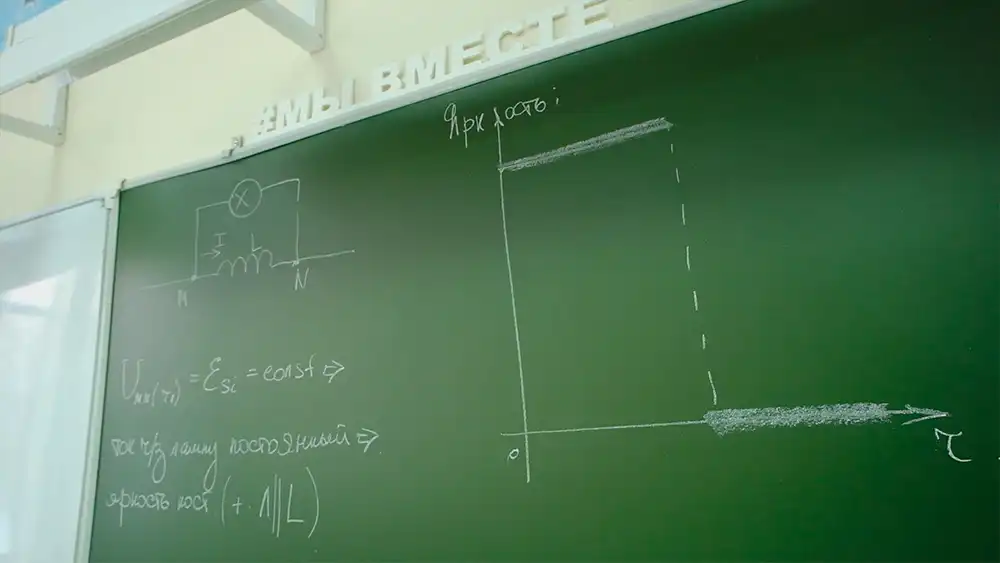 #МЫ ВМЕСТЕ
Яркость:
X
I L
M N
U_MN(τ₁) = ℰ_si = const ⇒
ток ч/з лампу постоянный ⇒
яркость пост (+ Л||L)
0
τ